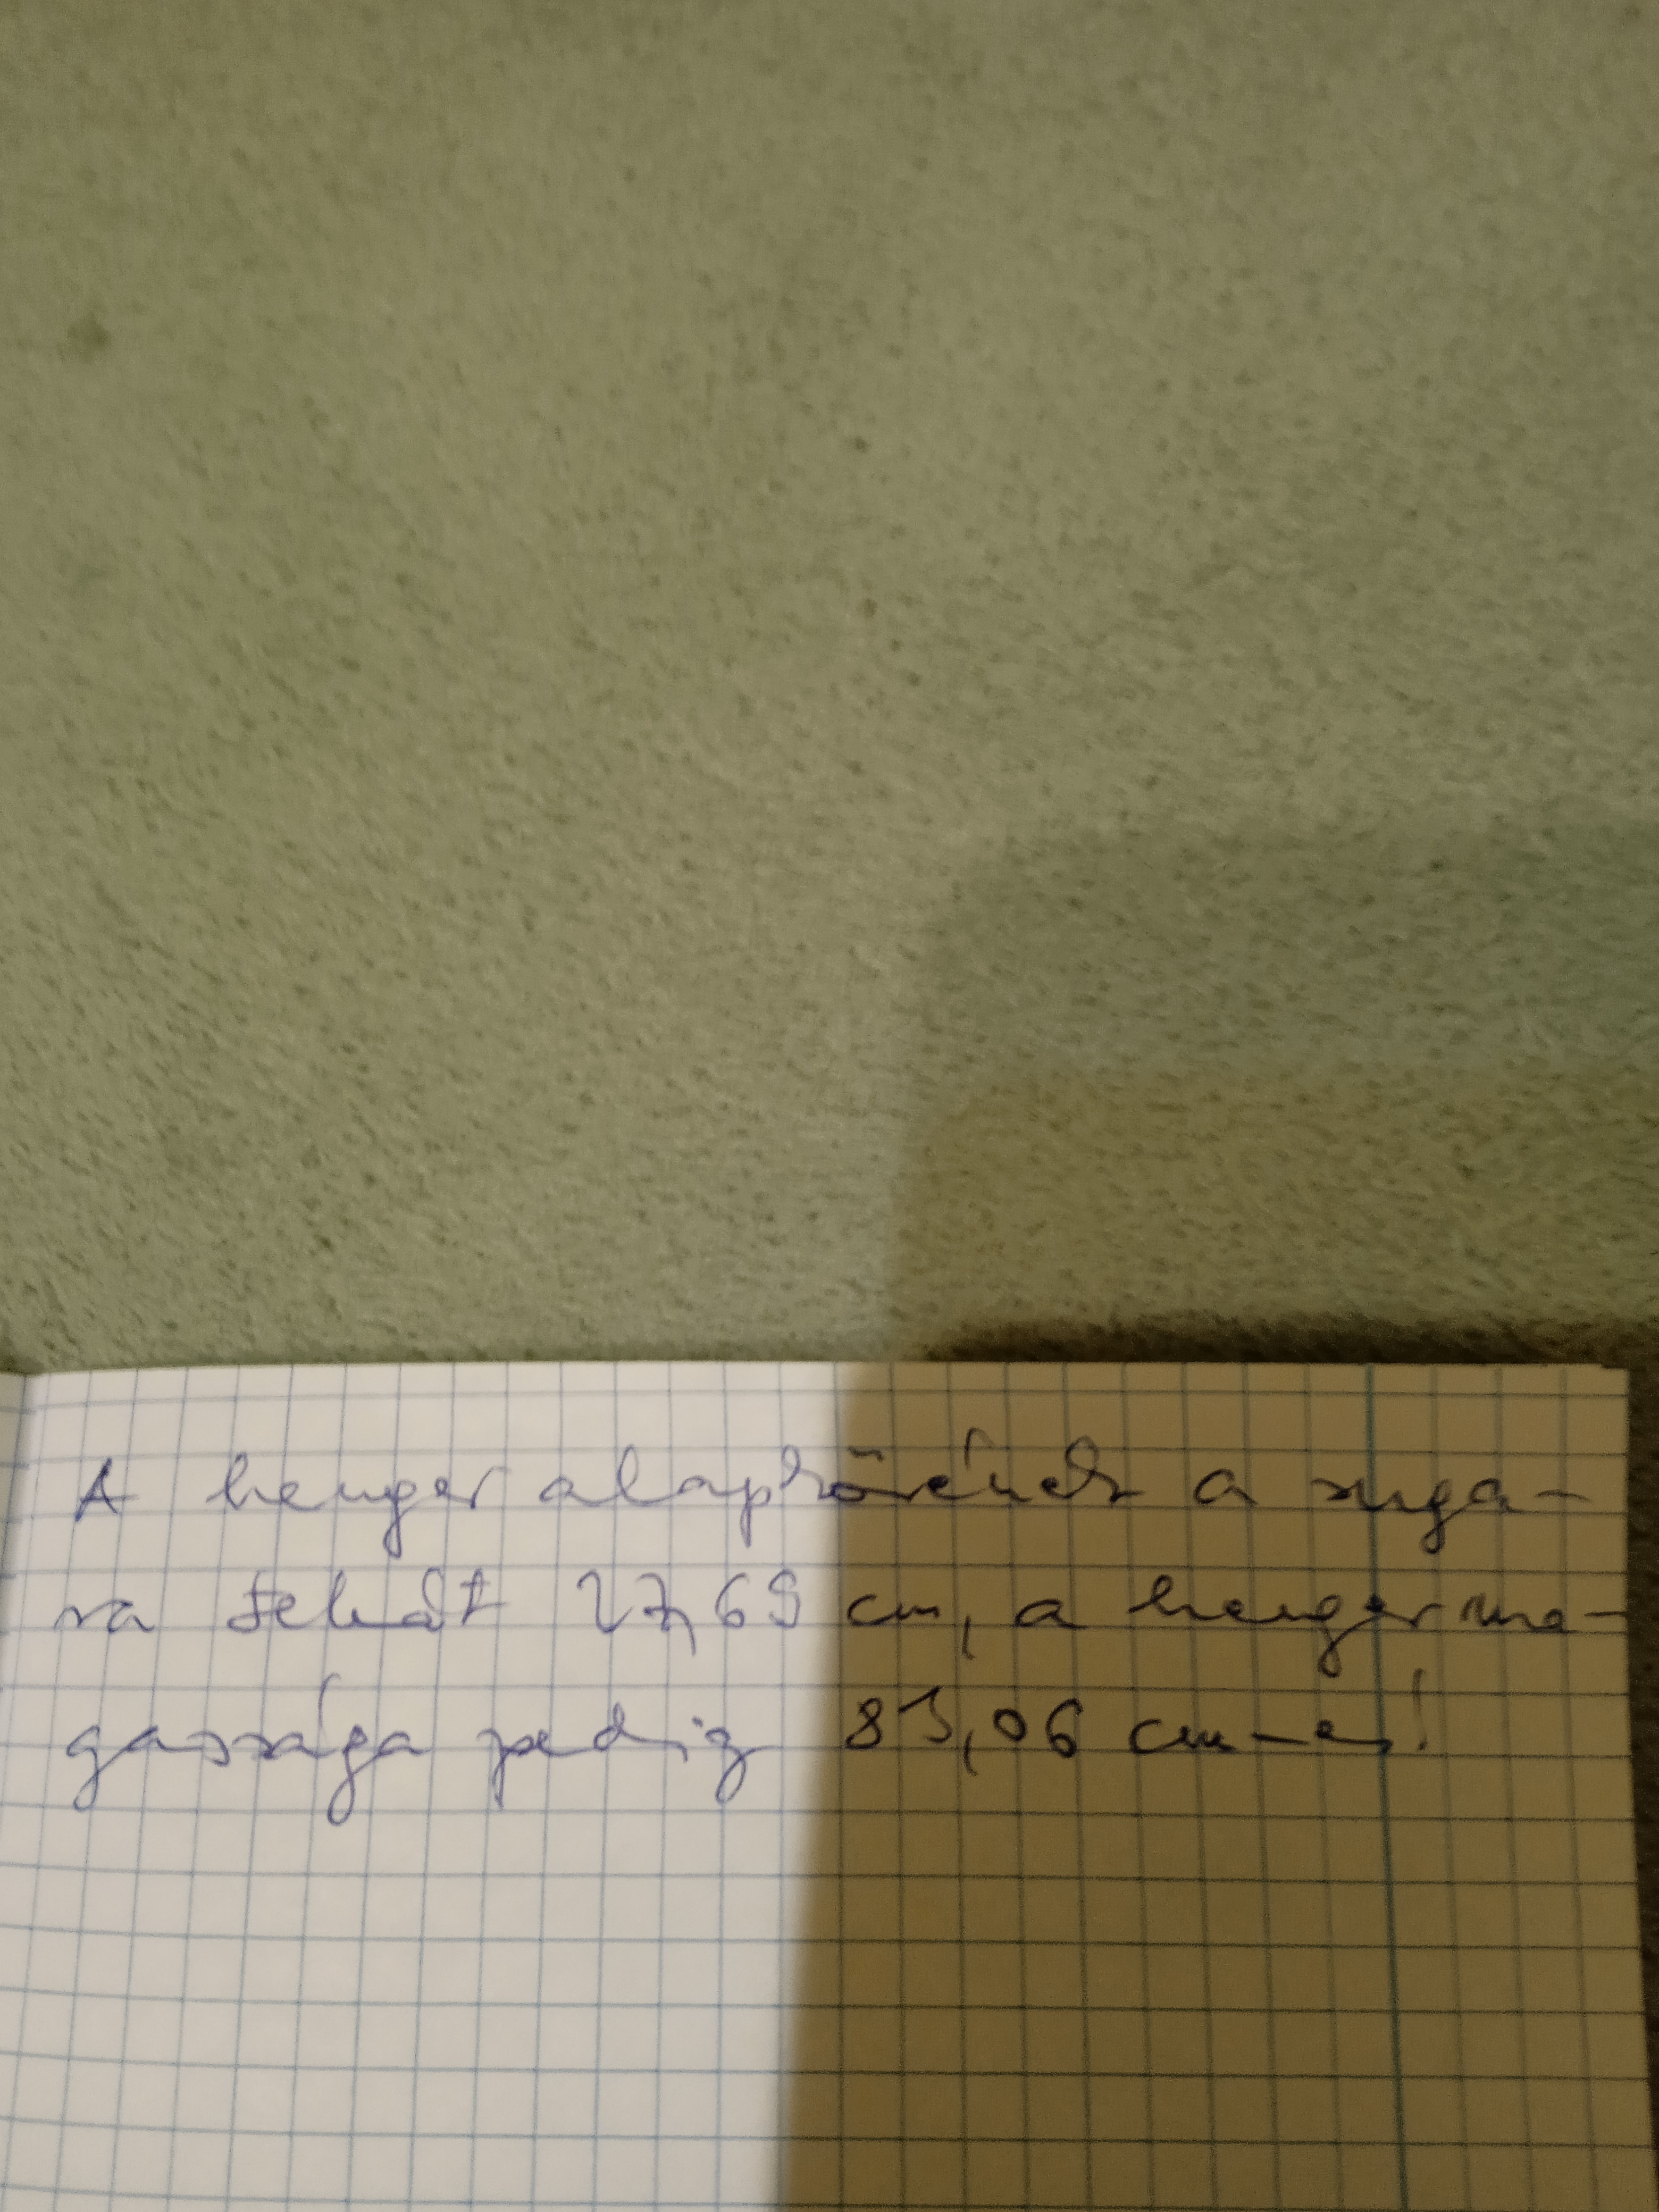 A henger alapkörének a suga-
ra tehát 27,69 cm, a henger ma-
gassága pedig 83,06 cm-es!